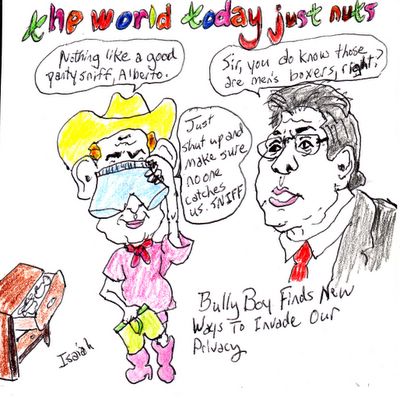 the world today just nuts
Nothing like a good
panty sniff, Alberto.
Sir, you do know those
are men's boxers, right?
Just
shut up and
make sure
no one
catches
us. SNIFF
Bully Boy Finds New
Ways To Invade Our
Privacy
Isaiah